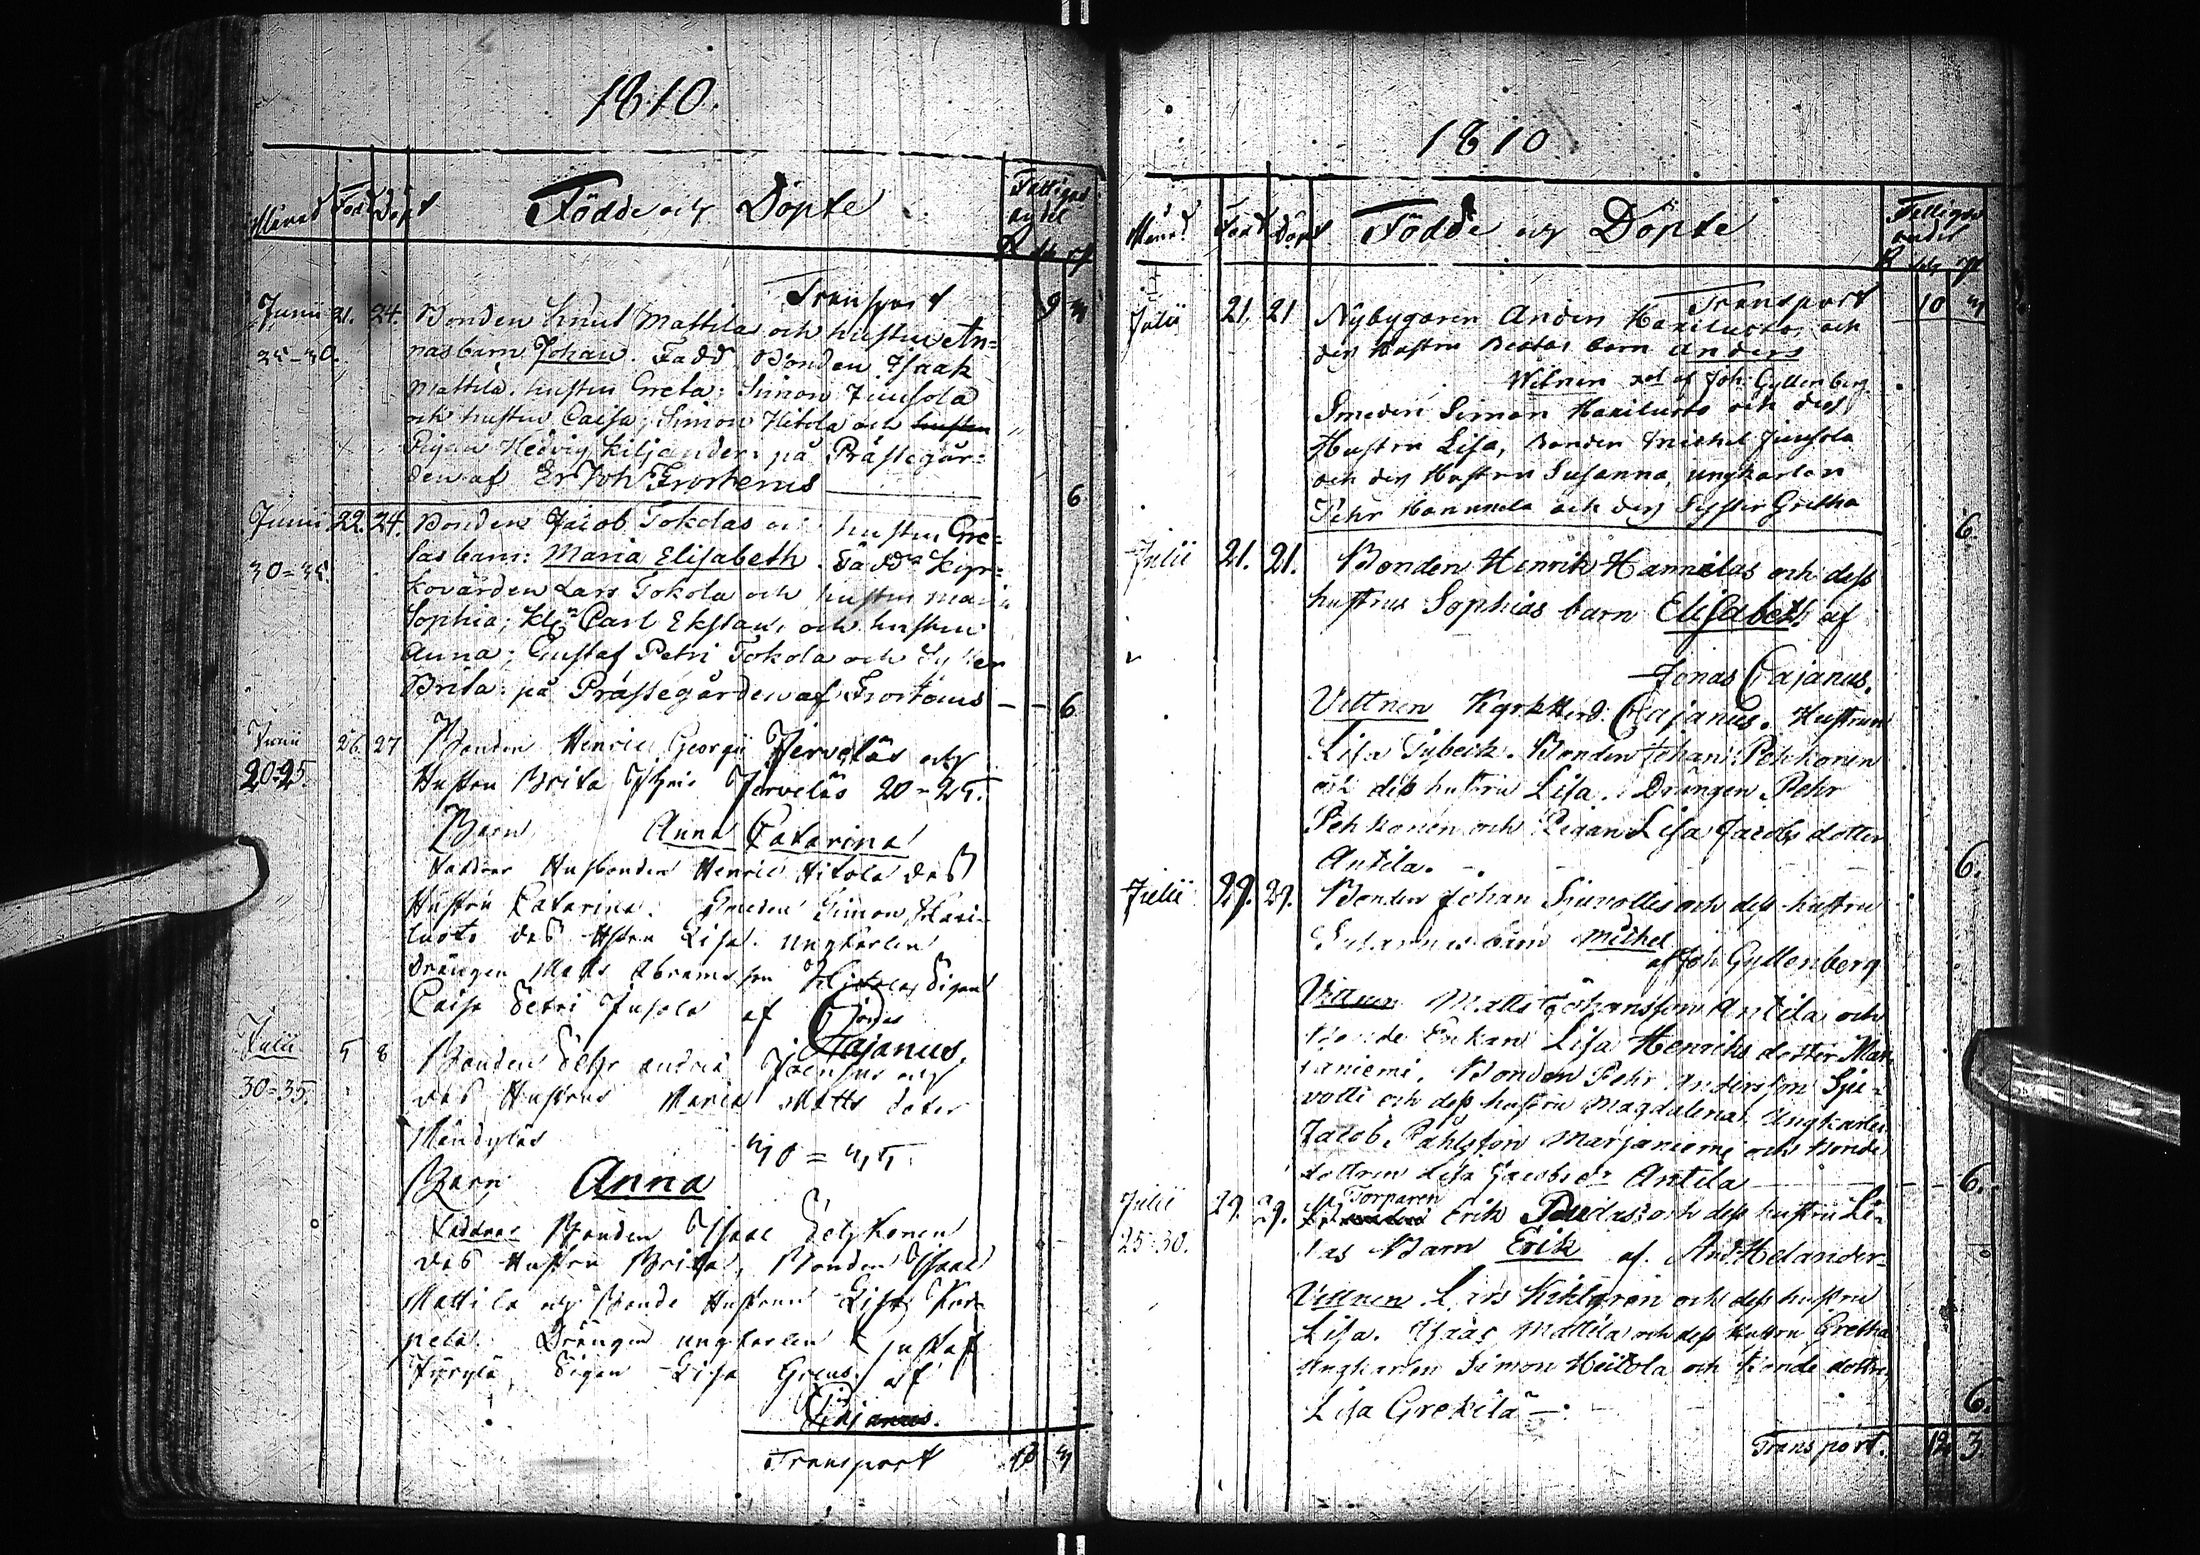 1810.
Månad Född Döpt Födde och Döpte Fattigas andel
R sk rs
Transport 9 3
Junii 21. 24. Bonden Knut Mattilas och hustru An-
35-30. nas barn Johan. Fadd. Bonden Isaak
Mattila, hustru Greta; Simon Junsola
och hustru Caisa; Simon Hitola och hustru
Pigan Hedvig Kiljander: på Prästegår-
den af Er Joh Frosterus 6
Junii 22. 24. Bonden Jacob Tokolas och hustru Gre-
tas barn: Maria Elisabeth. Fadd. Kyr-
30-35. kovärden Lars Tokola och hustru Maria
Sophia; Carl Ekstam, och hustru
Anna; Gustaf Petri Tokola och Syster
Brita: på Prästegården af Frosterus - - 6
Junii 26. 27 Bonden Henric Georgii Jervelas och
20-25. Hustru Brita Jervelas 20-25.
Barn Anna Catarina
Faddrar Husbonden Henric Hitola des
Hustru Catarina. Smeden Simon Kari-
luoto des Hstru Lisa. ungkarlen
drängen Matts Abramsson Pigan
Caisa Petri Jusola af Jonas
Cajanus.
Julii 5 8 Bonden Pehr Joensuu och
30-35. des Hustrus Maria Matts doter
Mändyläs 30=35.
Barn Anna
Faddrar Bonden Isaac Pehkonen
des Hustru Brita, Bonden Isaac
Mattila och bonde Hustrun Lisa Kor-
pela. Drängen ungkarlen Gustaf
Jyrylä, Pigan Lisa af
Cajanus.
Transport 10 3
1810.
Månad Född Döpt Födde och Döpte Fattigas andel
R sk rs
Transport 10 3
Julii 21. 21 Nybygaren Anders Kariluoto, och
des Hustru Beatas barn Anders
Witnen af Joh: Gyllenberg
Smeden Simon Kariluoto och des
Hustru Lisa, Bonden Michel Junsola
och des Hustru Susanna, ungkarlen
Pehr Hannula och des Syster Gretha 6.
Julii 21. 21. Bonden Henrik Hannulas och dess
hustrus Sophias barn Elisabeth af
Jonas Cajanus.
Vittnen Kyrkherd. Cajanus. Hustrun
Lisa Sybeck. Bonden Johan Pehkonen
och dess hustru Lisa. Drängen Pehr
Pehkonen och Pigan Lisa Jacobs dotter
Antila. 6.
Julii 29. 29. Bonden Johan Siuvottis och dess hustru
Susannas barn Michel
af Joh: Gyllenberg
Vittnen Matts Johansson Antila och
Bonde Enkan Lisa Henriks doter Mar-
janiemi. Bonden Pehr Andersson Siu-
votti och dess hustru Magdalena. Ungkarlen
Jacob Påhlsson Marjaniemi och Bonde
dottren Lisa Jacobs dr Antila 6.
Julii 29. 29. Torparen Erik och dess hustru Li-
25-30. sas Barn Erik af. And. Helander-
Vittnen Lars Kihlgren och dess hustru
Lisa. Isaac Mattila och dess Hustru Gretha
Ungkarlen Simon Hiitola och bonde dottren
Lisa Grekilä 6.
Transport. 12 3.